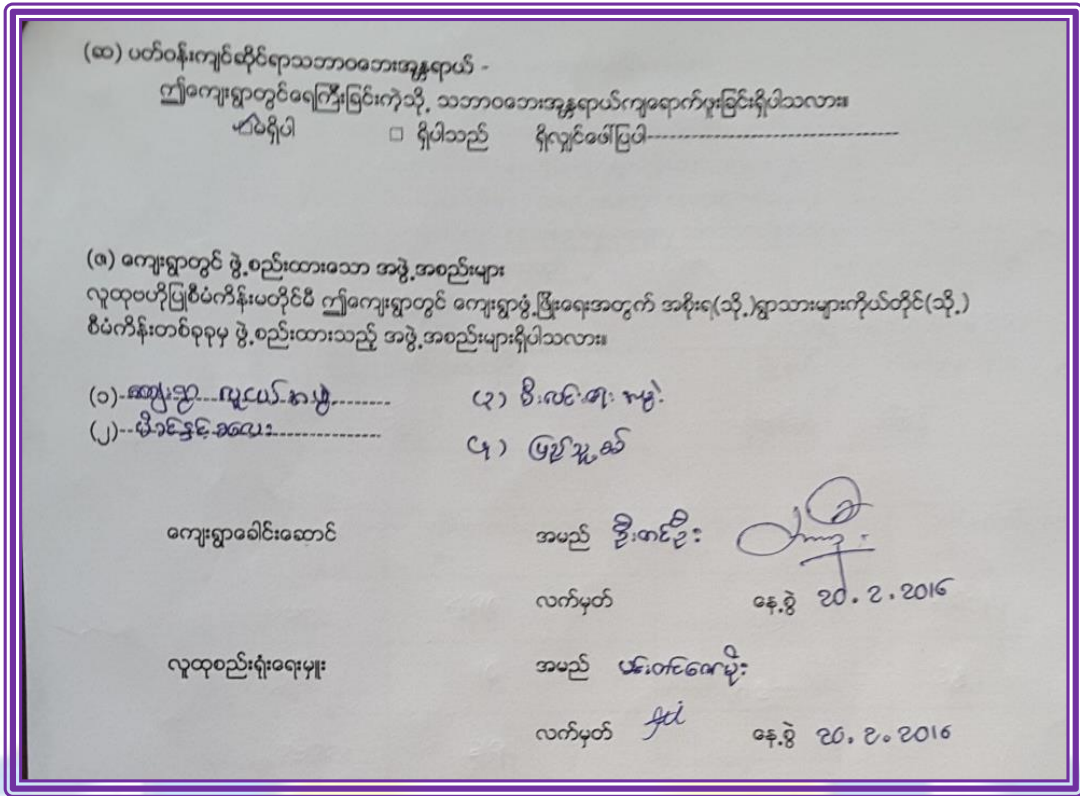 (ဆ) ပတ်ဝန်းကျင်ဆိုင်ရာသဘာဝဘေးအန္တရာယ် -
ဤကျေးရွာတွင်ရေကြီးခြင်းကဲ့သို့ သဘာဝဘေးအန္တရာယ်ကျရောက်ဖူးခြင်းရှိပါသလား။
မရှိပါ □ ရှိပါသည် ရှိလျှင်ဖေါ်ပြပါ--------------------------------
(ဇ) ကျေးရွာတွင် ဖွဲ့စည်းထားသော အဖွဲ့အစည်းများ
လူထုဗဟိုပြုစီမံကိန်းမတိုင်မီ ဤကျေးရွာတွင် ကျေးရွာဖွံ့ဖြိုးရေးအတွက် အစိုးရ(သို့)ရွာသားများကိုယ်တိုင်(သို့)
စီမံကိန်းတစ်ခုခုမှ ဖွဲ့စည်းထားသည့် အဖွဲ့အစည်းများရှိပါသလား။
(၁) ကျေးရွာ လူငယ် အဖွဲ့ (၃) မီးလင်းရေး အဖွဲ့
(၂) မိခင်နှင့်ကလေး
(၄) ပြည်သူ့
ကျေးရွာခေါင်းဆောင် အမည် ဦးတင်ဦး
လက်မှတ် နေ့စွဲ 20.2.2016
လူထုစည်းရုံးရေးမှူး အမည်
လက်မှတ် နေ့စွဲ 20.2.2016